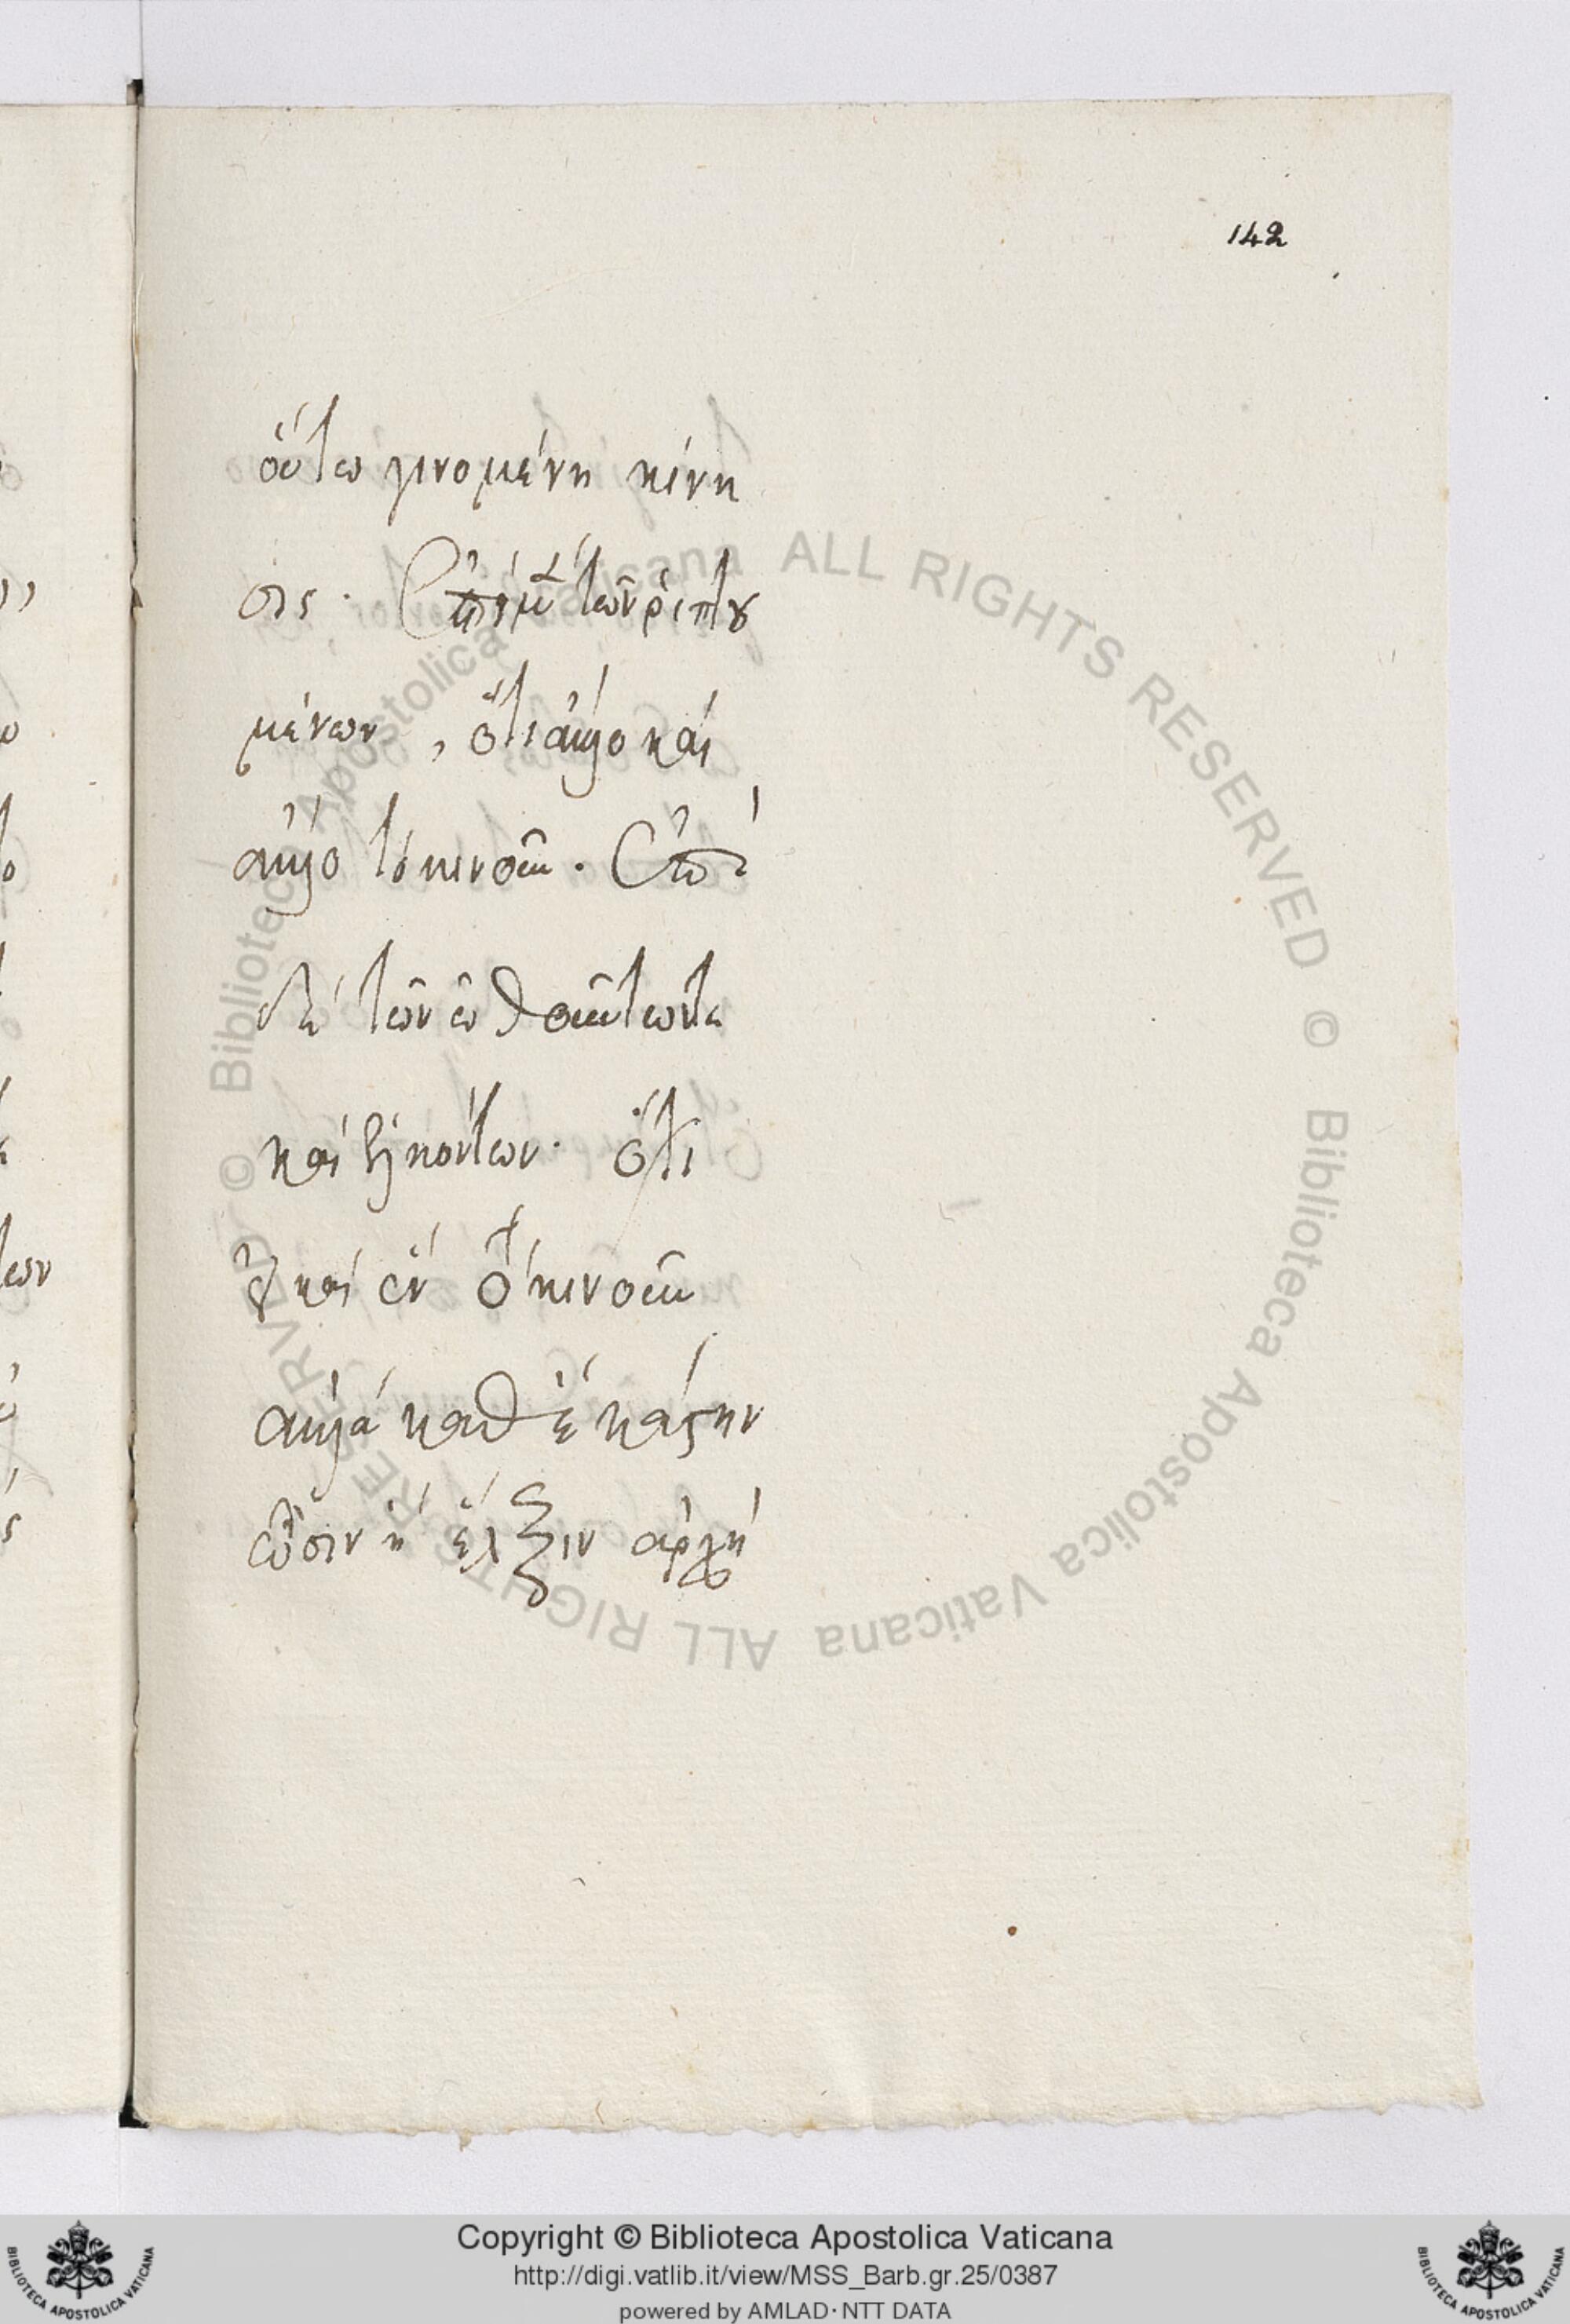 142
οὕτω γινομένη κίνη
σις. Ἐπὶ μὲν τῶν ῥιπτου
μένων, ὅτι ἄλλο καὶ
ἄλλο τὸ κινοῦν. Ἐπὶ
δὲ τῶν ὠθούντων
καὶ ἑλκόντων. ὅτι
καὶ ἓν τὸ κινοῦν
ἀλλὰ καθ' ἑκάστην
ὦσιν ἢ ἕλξιν ἀρχὴ
Biblioteca Apostolica Vaticana ALL RIGHTS RESERVED ©
Biblioteca Apostolica Vaticana ALL RIGHTS RESERVED ©
Copyright © Biblioteca Apostolica Vaticana
http://digi.vatlib.it/view/MSS_Barb.gr.25/0387
powered by AMLAD · NTT DATA
BIBLIOTECA APOSTOLICA VATICANA
BIBLIOTECA APOSTOLICA VATICANA